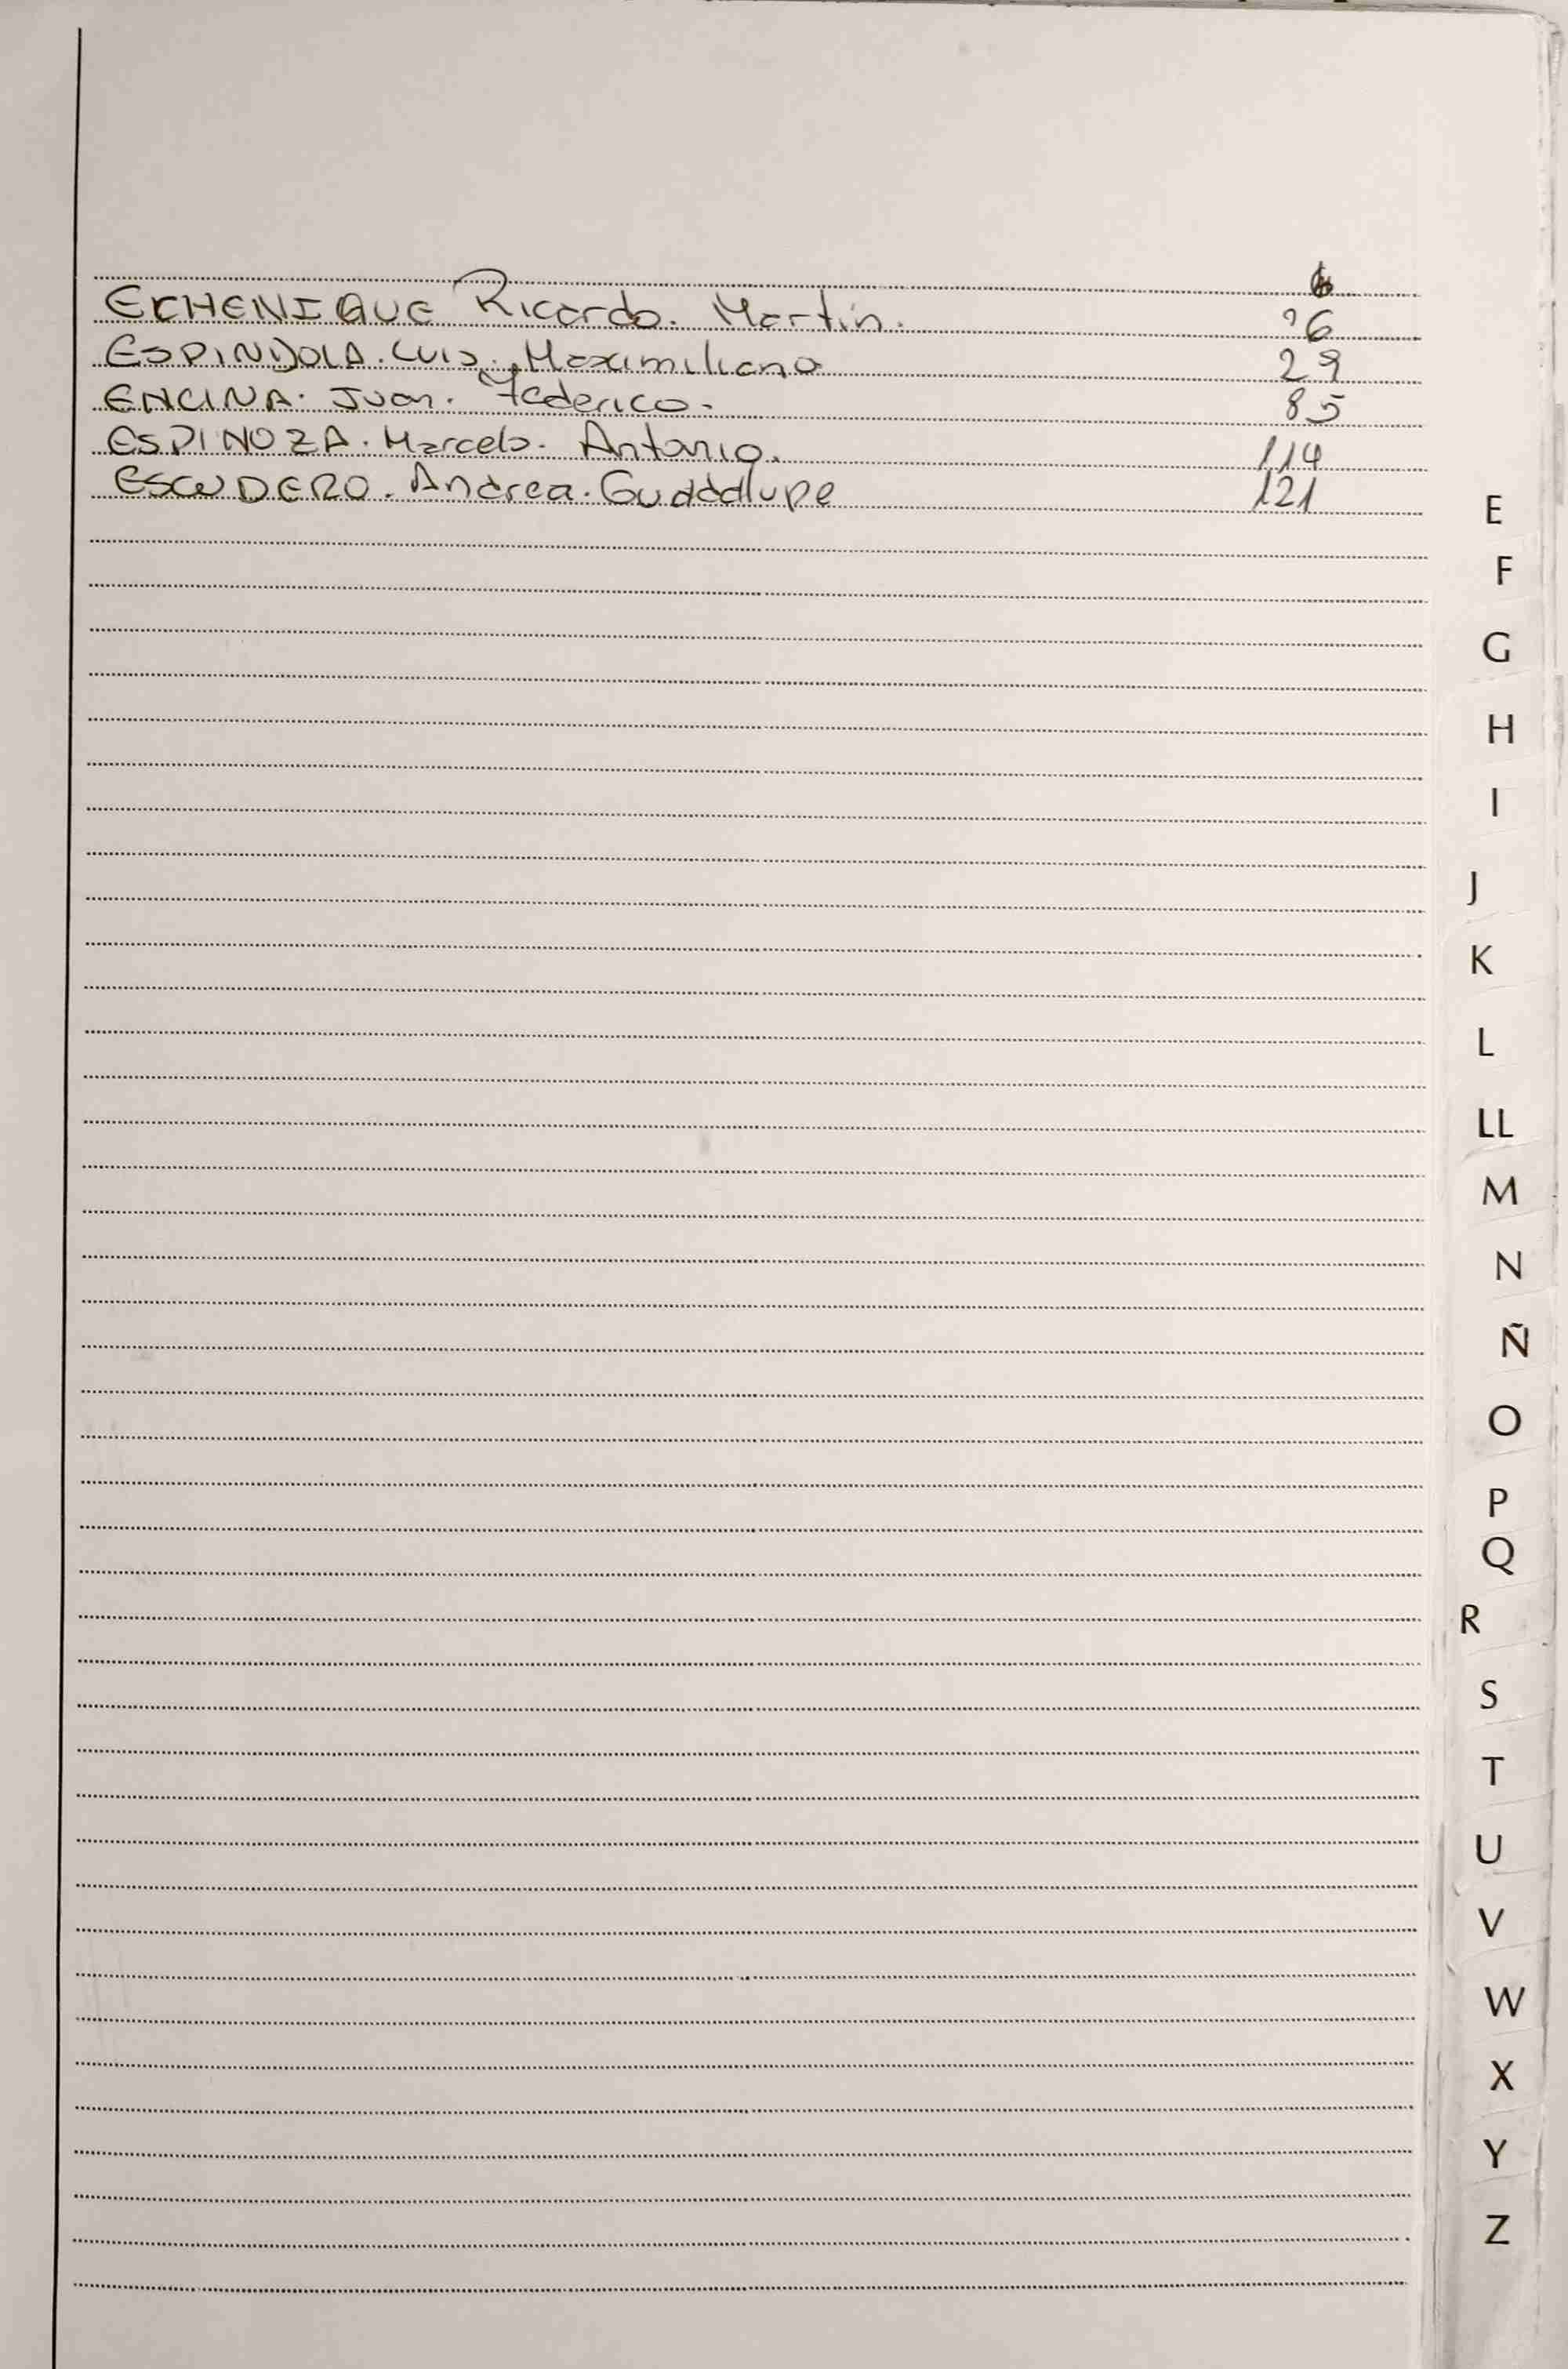 ECHENIQUE Ricardo. Martín. 26
ESPINDOLA. Luis. Maximiliano 29
ENCINA. Juan. Federico. 85
ESPINOZA. Marcelo. Antonio. 114
ESCUDERO. Andrea. Guadalupe 121
E
F
G
H
I
J
K
L
LL
M
N
Ñ
O
P
Q
R
S
T
U
V
W
X
Y
Z